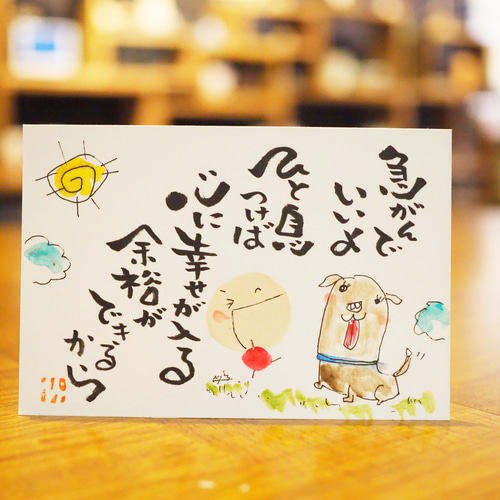 急がんで
いいよ
ひと息
つけば
心に幸せが入る
余裕が
できる
から